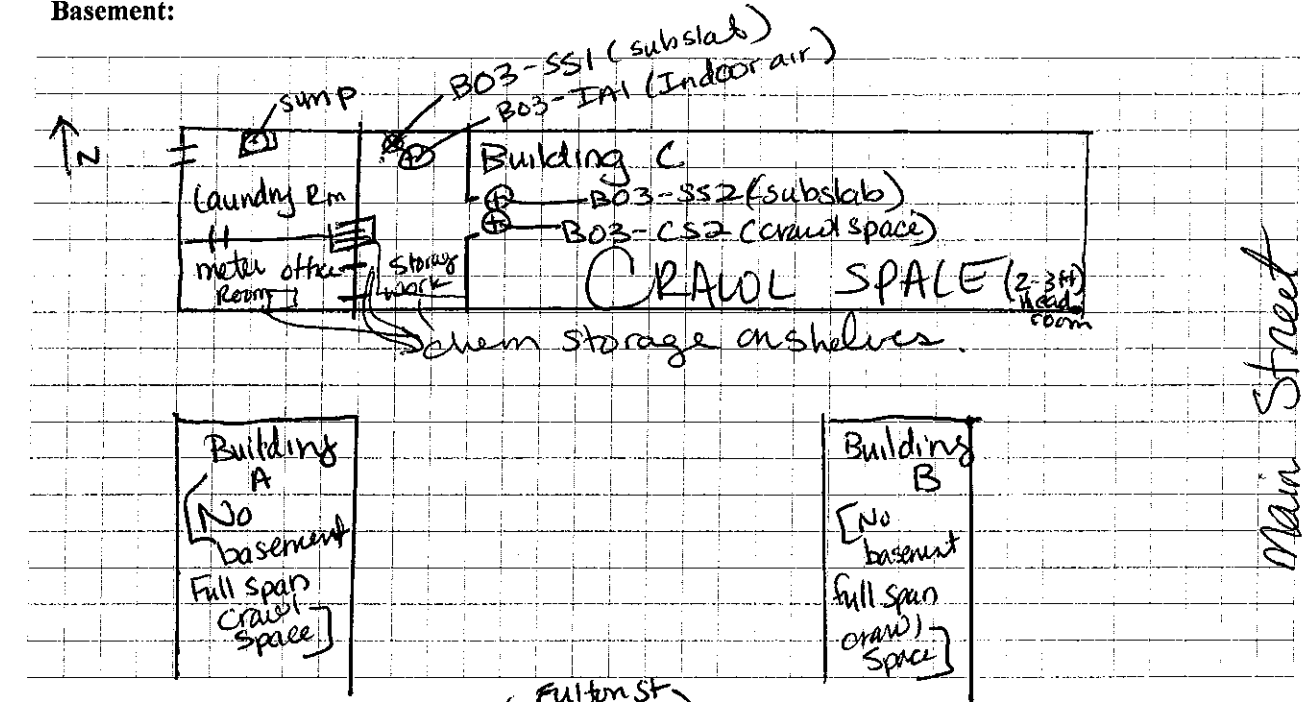 Basement:
B03-SS1 (subslab)
B03-IA1 (Indoor air)
sump
N
Building C
Laundry Rm
B03-SS2 (subslab)
B03-CS2 (crawl space)
meter office
Room
storage
work
CRAWL SPACE (2-3ft)
head
room
chem storage on shelves.
Main Street
Building
A
[No
basement
Full span
crawl
space]
Building
B
[No
basement
full span
crawl
space]
Fulton St